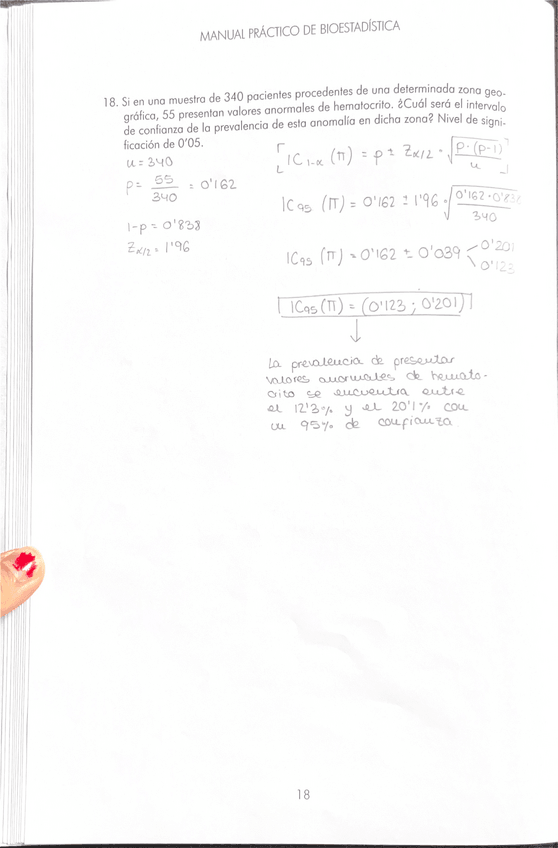 MANUAL PRÁCTICO DE BIOESTADÍSTICA
18. Si en una muestra de 340 pacientes procedentes de una determinada zona geo-
gráfica, 55 presentan valores anormales de hematocrito. ¿Cuál será el intervalo
de confianza de la prevalencia de esta anomalía en dicha zona? Nivel de signi-
ficación de 0'05.
n = 340
p = 55/340 = 0'162
1-p = 0'838
Zα/2 = 1'96
[IC1-α (π) = p ± Zα/2 · √(p·(p-1)/n)]
IC95 (π) = 0'162 ± 1'96 · √(0'162·0'838/340)
IC95 (π) = 0'162 ± 0'039 < 0'201
0'123
IC95 (π) = (0'123 ; 0'201)
↓
La prevalencia de presentar
valores anormales de hemato-
crito se encuentra entre
el 12'3% y el 20'1% con
un 95% de confianza
18